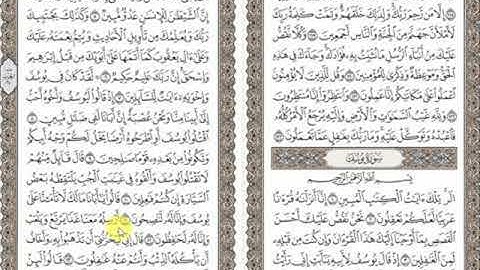 إِلَّا مَن رَّحِمَ رَبُّكَ وَلِذَٰلِكَ خَلَقَهُمْ وَتَمَّتْ كَلِمَةُ رَبِّكَ
لَأَمْلَأَنَّ جَهَنَّمَ مِنَ ٱلْجِنَّةِ وَٱلنَّاسِ أَجْمَعِينَ وَكُلًّا نَّقُصُّ
عَلَيْكَ مِنْ أَنۢبَآءِ ٱلرُّسُلِ مَا نُثَبِّتُ بِهِۦ فُؤَادَكَ وَجَآءَكَ فِى هَٰذِهِ
ٱلْحَقُّ وَمَوْعِظَةٌ وَذِكْرَىٰ لِلْمُؤْمِنِينَ وَقُل لِّلَّذِينَ لَا يُؤْمِنُونَ
ٱعْمَلُوا۟ عَلَىٰ مَكَانَتِكُمْ إِنَّا عَٰمِلُونَ وَٱنتَظِرُوٓا۟ إِنَّا مُنتَظِرُونَ
وَلِلَّهِ غَيْبُ ٱلسَّمَٰوَٰتِ وَٱلْأَرْضِ وَإِلَيْهِ يُرْجَعُ ٱلْأَمْرُ كُلُّهُۥ
فَٱعْبُدْهُ وَتَوَكَّلْ عَلَيْهِ وَمَا رَبُّكَ بِغَٰفِلٍ عَمَّا تَعْمَلُونَ
سُورَةُ يُوسُفَ
بِسْمِ ٱللَّهِ ٱلرَّحْمَٰنِ ٱلرَّحِيمِ
الٓر تِلْكَ ءَايَٰتُ ٱلْكِتَٰبِ ٱلْمُبِينِ إِنَّآ أَنزَلْنَٰهُ قُرْءَٰنًا
عَرَبِيًّا لَّعَلَّكُمْ تَعْقِلُونَ نَحْنُ نَقُصُّ عَلَيْكَ أَحْسَنَ
ٱلْقَصَصِ بِمَآ أَوْحَيْنَآ إِلَيْكَ هَٰذَا ٱلْقُرْءَانَ وَإِن كُنتَ مِن قَبْلِهِۦ
لَمِنَ ٱلْغَٰفِلِينَ إِذْ قَالَ يُوسُفُ
إِنَّ ٱلشَّيْطَٰنَ لِلْإِنسَٰنِ عَدُوٌّ مُّبِينٌ وَكَذَٰلِكَ يَجْتَبِيكَ
رَبُّكَ وَيُعَلِّمُكَ مِن تَأْوِيلِ ٱلْأَحَادِيثِ وَيُتِمُّ نِعْمَتَهُۥ عَلَيْكَ
وَعَلَىٰٓ ءَالِ يَعْقُوبَ كَمَآ أَتَمَّهَا عَلَىٰٓ أَبَوَيْكَ مِن قَبْلُ إِبْرَٰهِيمَ
وَإِسْحَٰقَ إِنَّ رَبَّكَ عَلِيمٌ حَكِيمٌ لَّقَدْ كَانَ فِى يُوسُفَ
وَإِخْوَتِهِۦٓ ءَايَٰتٌ لِّلسَّآئِلِينَ إِذْ قَالُوا۟ لَيُوسُفُ وَأَخُوهُ أَحَبُّ
إِلَىٰٓ أَبِينَا مِنَّا وَنَحْنُ عُصْبَةٌ إِنَّ أَبَانَا لَفِى ضَلَٰلٍ مُّبِينٍ
ٱقْتُلُوا۟ يُوسُفَ أَوِ ٱطْرَحُوهُ أَرْضًا يَخْلُ لَكُمْ وَجْهُ أَبِيكُمْ
وَتَكُونُوا۟ مِنۢ بَعْدِهِۦ قَوْمًا صَٰلِحِينَ قَالَ قَآئِلٌ مِّنْهُمْ
لَا تَقْتُلُوا۟ يُوسُفَ وَأَلْقُوهُ فِى غَيَٰبَتِ ٱلْجُبِّ يَلْتَقِطْهُ بَعْضُ
ٱلسَّيَّارَةِ إِن كُنتُمْ فَٰعِلِينَ قَالُوا۟ يَٰٓأَبَانَا مَا لَكَ لَا تَأْمَ۫نَّا عَلَىٰ
يُوسُفَ وَإِنَّا لَهُۥ لَنَٰصِحُونَ أَرْسِلْهُ مَعَنَا غَدًا يَرْتَعْ وَيَلْعَبْ
وَإِنَّا لَهُۥ لَحَٰفِظُونَ قَالَ إِنِّى لَيَحْزُنُنِىٓ أَن تَذْهَبُوا۟ بِهِۦ وَأَخَافُ
أَن يَأْكُلَهُ ٱلذِّئْبُ وَأَنتُمْ عَنْهُ غَٰفِلُونَ قَالُوا۟ لَئِنْ